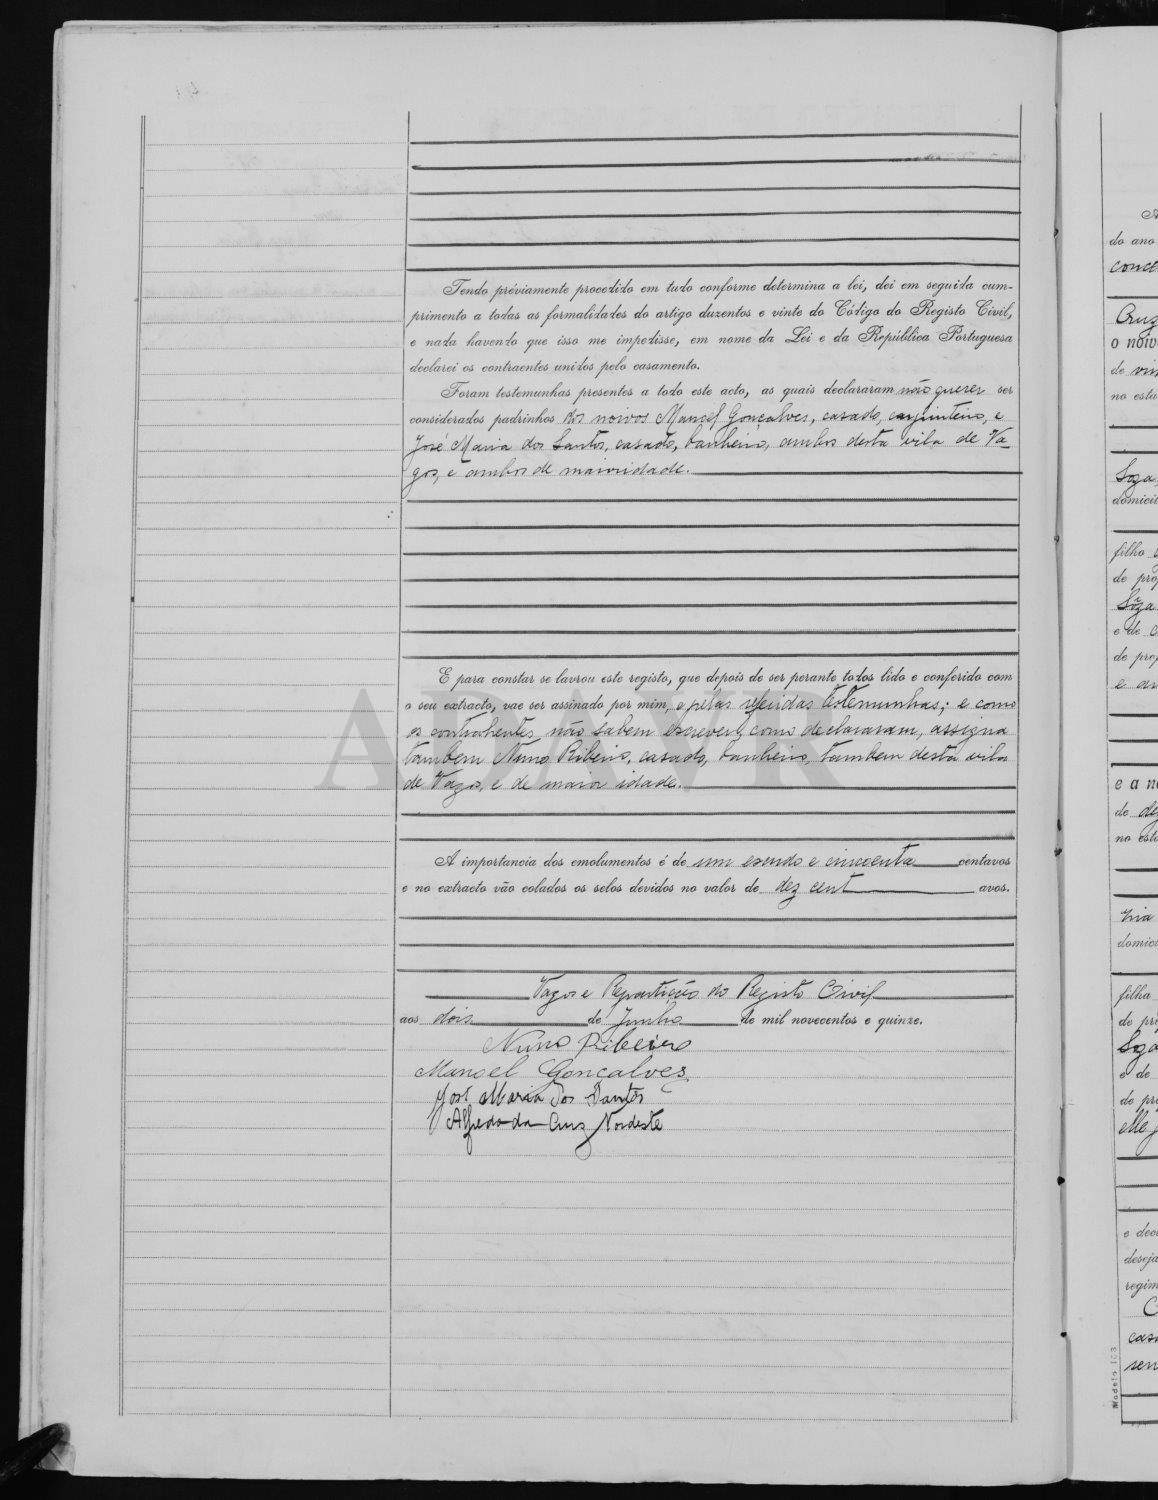 Tendo préviamente procedido em tudo conforme determina a lei, dei em seguida cum-
primento a todas as formalidades do artigo duzentos e vinte do Código do Registo Civil,
e nada havendo que isso me impedisse, em nome da Lei e da República Portuguesa
declarei os contraentes unidos pelo casamento.
Foram testemunhas presentes a todo este acto, as quais declararam não querer ser
considerados padrinhos dos noivos Manoel Gonçalves, casado, carpinteiro, e
José Maria dos Santos, casado, banheiro, ambos desta vila de Va-
gos, e ambos de maioridade.
E para constar se lavrou este registo, que depois de ser perante todos lido e conferido com
o seu extracto, vae ser assinado por mim, e pelas referidas testemunhas; e como
os contrahentes não sabem escrever, como declararam, assigna
tambem Nuno Ribeiro, casado, banheiro, tambem desta vila
de Vagos, e de maior idade.
A importancia dos emolumentos é de um escudo e cincoenta centavos
e no extracto vão colados os selos devidos no valor de dez cent avos.
Vagos e Repartição do Registo Civil
aos dois de Junho de mil novecentos e quinze.
Nuno Ribeiro
Manoel Gonçalves
José Maria dos Santos
Alfredo da Cruz Nordeste
ADAVR
do ano
Cruz
o noiv
de vin
no esta
Soza
domicil
filho
de prop
Soza
e de
de prop
e a no
no esta
domici
filha
de pro
e de
de pro
e decl
deseja
regim
casa
sen
Modelo 103